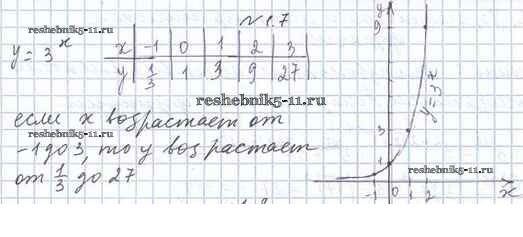 № 1.7
reshebnik5-11.ru
y = 3^x
x | -1 | 0 | 1 | 2 | 3
y | 1/3 | 1 | 3 | 9 | 27
reshebnik5-11.ru
если x возрастает от
-1 до 3, то y возрастает
от 1/3 до 27
reshebnik5-11.ru
y
9
reshebnik5-11.ru
y=3^x
3
1
reshebnik5-11.ru
-1 0 1 2 x